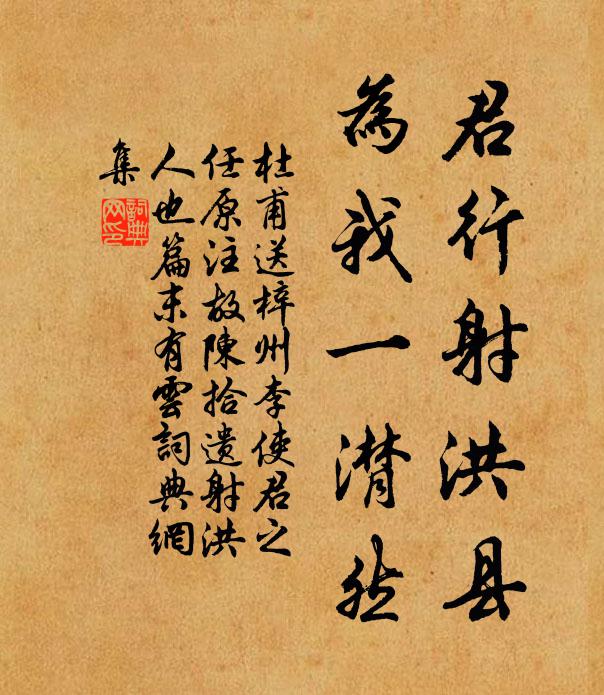 君行射洪县
為我一潸然
杜甫送梓州李使君之
任原注故陳拾遺射洪
人也篇末有雲詞典網
集
詞典
网印